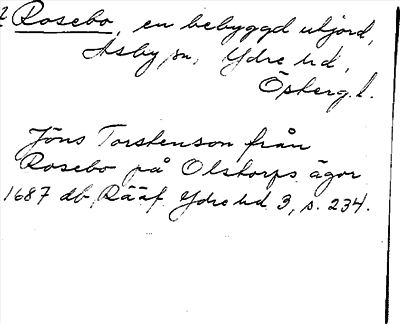 Rosebo, en bebyggd utjord,
Asby sn, Ydre hd,
Österg. l.
Jöns Torstenson från
Rosebo på Olstorps ägor
1687 db Rääf Ydre hd 3, s. 234.